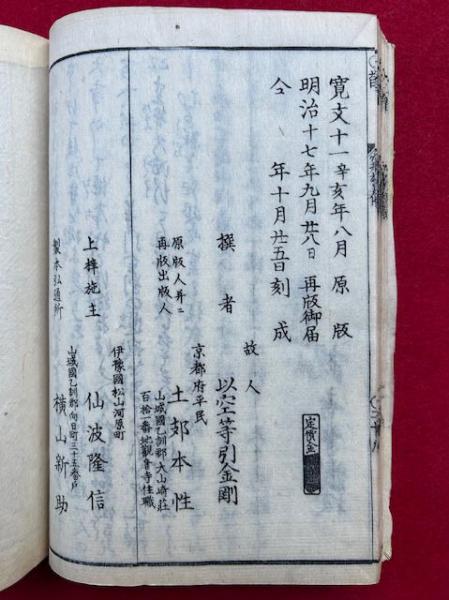 寛文十一辛亥年八月原版
明治十七年九月廿八日再版御届
仝年十月廿五日刻成
定價金
故人
撰者 以空等引金剛
京都府平民
原版人幷ニ
再版出版人
土郏本性
山城國乙訓郡大山崎莊
百拾一番地觀音寺住職
伊豫國松山河原町
上梓施主 仙波隆信
山城國乙訓郡向日町三十五番戸
製本弘通所 横山新助